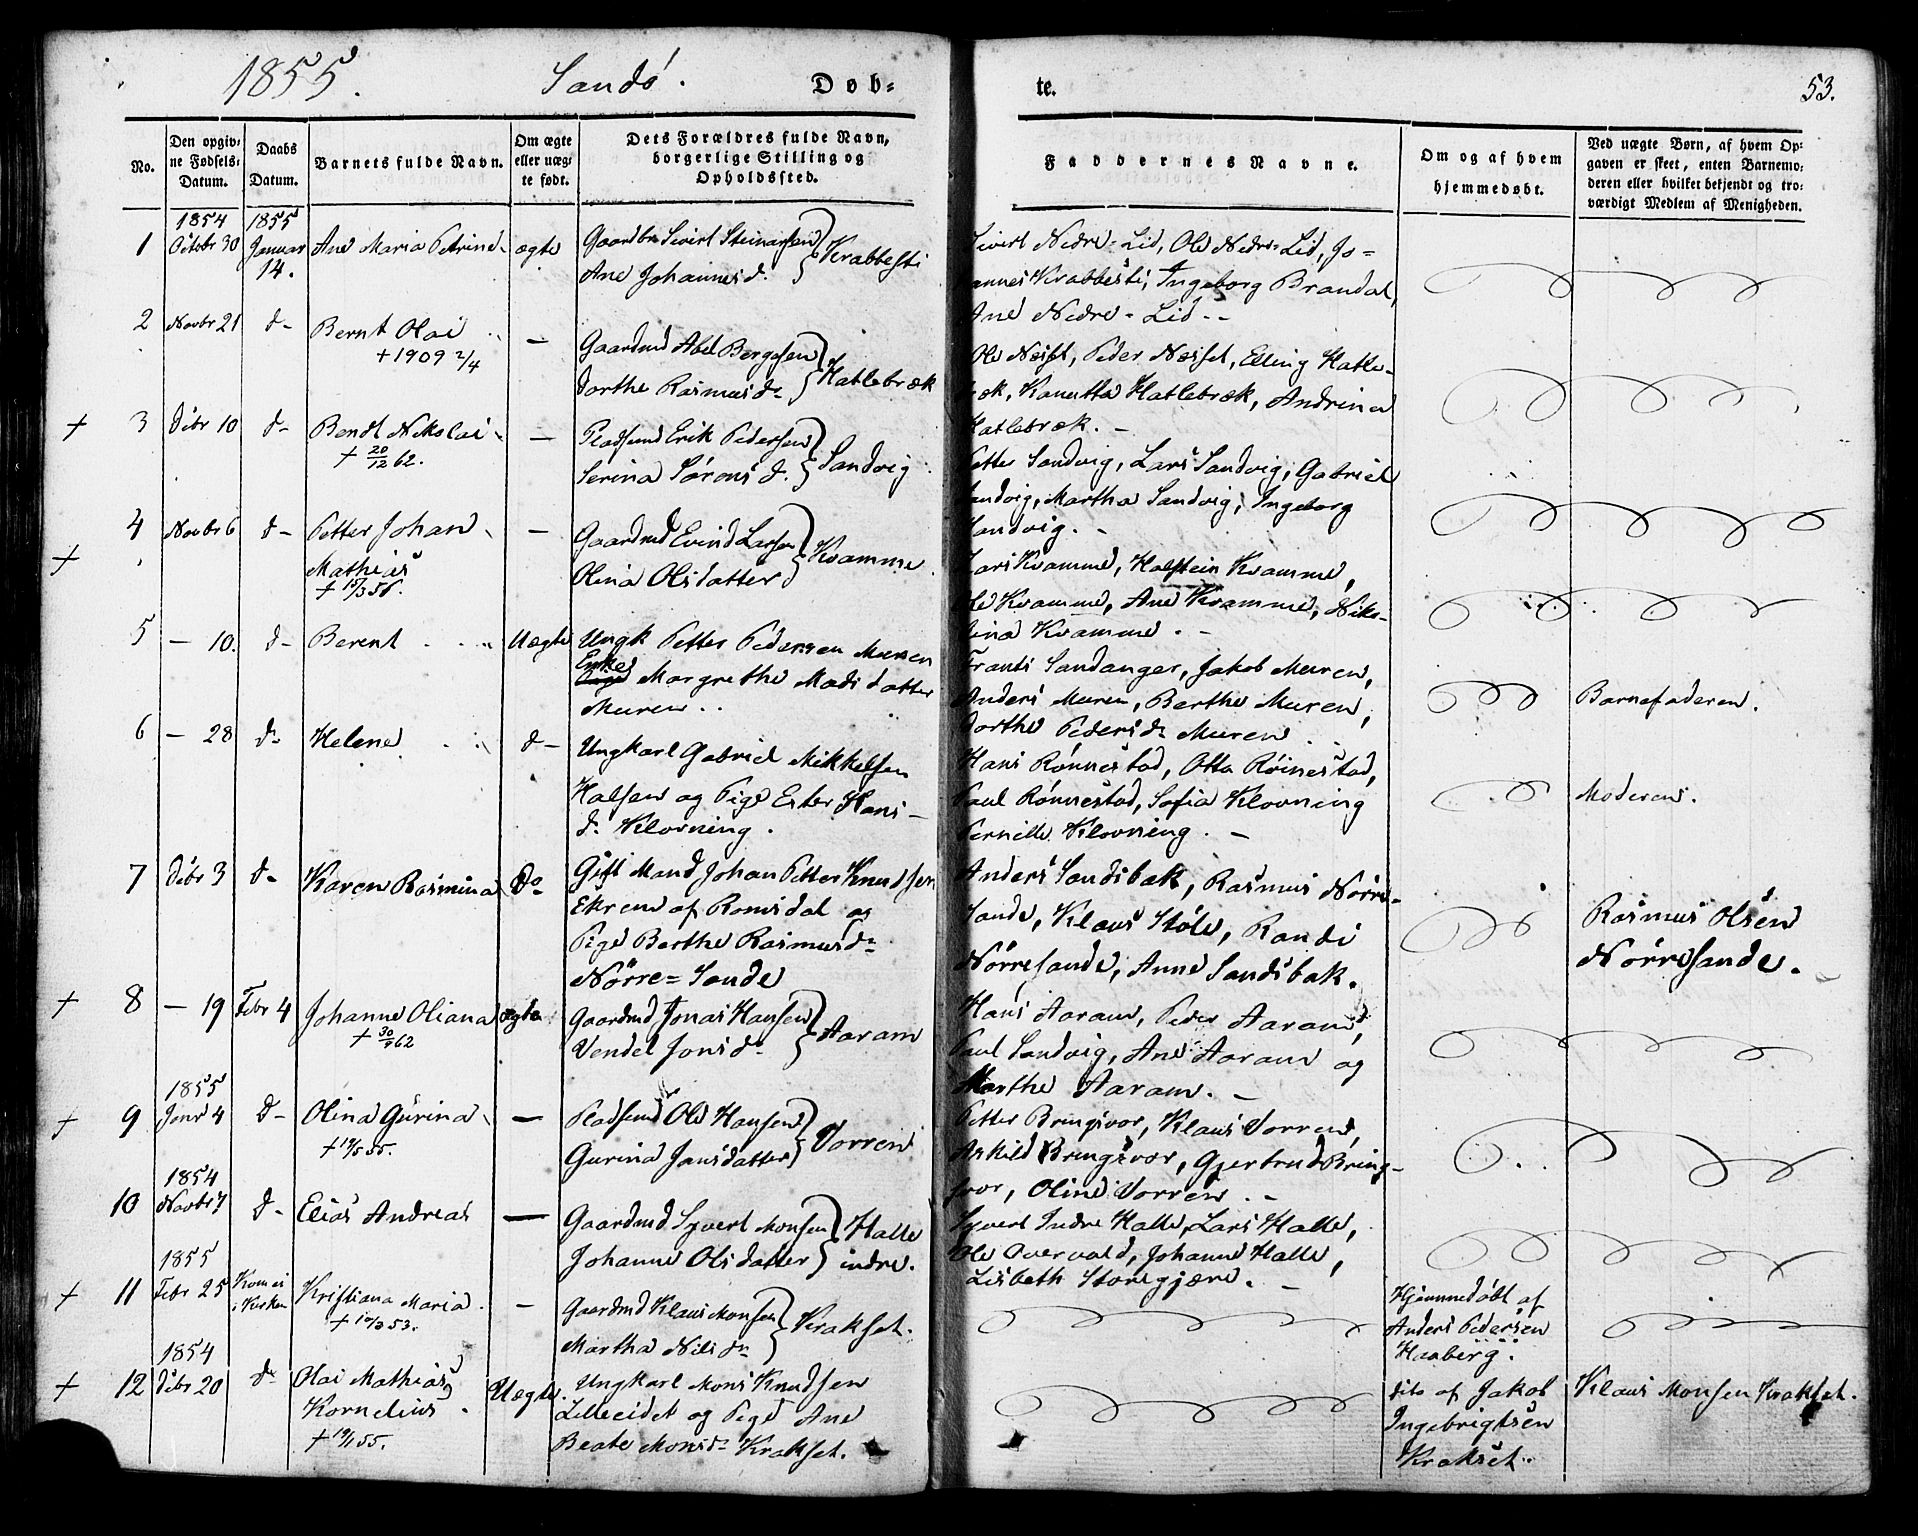 1855. Sandö. Döb=
te. 53.
No.
Den opgiv=
ne Fødsels=
Datum.
Daabs
Datum.
Barnets fulde Navn.
Om ægte
eller uæg=
te født.
Dets Forældres fulde Navn,
borgerlige Stilling og
Opholdssted.
Faddernes Navne.
Om og af hvem
hjemmedøbt.
Ved uægte Børn, af hvem Op=
gaven er skeet, enten Barnemo=
deren eller hvilket bekjendt og tro=
værdigt Medlem af Menigheden.
1854 1855
1 Octobr 30 Januar 14. Ane Maria Petrine ægte
Gaardbr Sivert Steinarsen
Ane Johannesd. } Krabbesti
Sivert Nedre-Lid, Ole Nedre-Lid, Jo=
hannes Krabbesti, Ingeborg Brandal,
Ane Nedre-Lid.-
2 Novbr 21 d- Bernt Olai —
+ 1909 2/4
Gaardmd Abel Bergesen
Dorthe Rasmusd. } Hatlebræk
Ole Neset, Peder Neset, Elling Hatle-
bræk, Kanutta Hatlebræk, Andrina
Hatlebræk. -
+ 3 Debr 10 d- Bendt Nikolai —
+ 20/12 62.
Pladsmd Erik Pedersen
Serina Sørens d. } Sandvig
Petter Sandvig, Lars Sandvig, Gabriel
Sandvig, Martha Sandvig, Ingeborg
Sandvig. -
+ 4 Novbr 6 d- Petter Johan —
Mathias
+ 15/3 56.
Gaardmd Evind Larsen
Olina Olsdatter } Kvamme
Lars Kvamme, Halstein Kvamme,
Ole Kvamme, Ane Kvamme, Niko-
lina Kvamme. -
5 — 10. d- Berent Uægte
Ungk Petter Pedersen Muren
Enke
Margrethe Madsdatter
Muren..
Frants Sandanger, Jakob Muren,
Anders Muren, Berthe Muren,
Dorthe Pedersd. Muren.
Barnefaderen.
6 — 28 d- Helene d-
Ungkarl Gabriel Mikkelsen
Halsen og Pige Ester Hans-
d. Klovning.
Hans Rønnestad, Otto Röinestad,
Paul Rønnestad, Sofia Klovning
Pernille Klovning. -
Moderens.
7 Debr 3 d- Karen Rasmina Do
Gift Mand Johan Petter Knudsen
Ekrem af Romsdal og
Pige Berthe Rasmusd.
Nörre=Sande
Anders Sandsbak, Rasmus Nörre-
Sande, Klaus Støle, Randi
Nörresande, Anne Sandsbak.
Rasmus Olsen
Nörresande.
+ 8 — 19 Febr 4 Johanne Oliana ægte
+ 30/9 62
Gaardmd Jonas Hansen
Vendel Jonsd. } Aaram
Hans Aaram, Peder Aaram,
Paul Sandvig, Ane Aaram og
Marthe Aaram. -
1855
+ 9 Janr 4 d- Olina Gurina —
+ 19/5 55.
Pladsmd Ole Hansen
Gurina Jansdatter } Vorren
Petter Bringsvor, Klaus Vorren,
Askild Bringsvor, Gjertrud Bring-
svor, Oline Vorren. -
1854
10 Novbr 7 d- Elias Andreas —
Gaardmd Syvert Monsen
Johanne Olsdatter } Halle indre.
Syvert Indre Halle, Lars Halle,
Ole Overvold, Johanne Halle,
Lisbeth Storegjære. -
1855
+ 11 Febr 25 Kom ei i Kirken Kristiana Maria. —
Gaardmd Klaus Monsen
Martha Nilsd. } Krakset.
Hjemmedøbt af
Anders Pedersen
Haaberg.
1854
+ 12 Debr 20 d- Olai Mathias Uægte.
Kornelius.
+ 19/1 55.
Ungkarl Mons Knudsen
Lilleeidet og Pige Ane
Beate Monsd. Krakset.
dito af Jakob
Ingebrigtsen
Krakset.
Klaus Monsen Krakset.